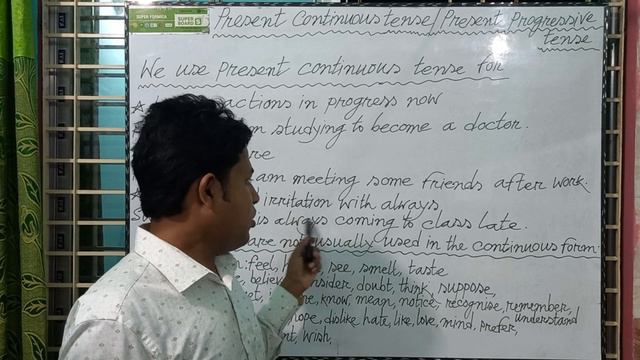 SUPER FORMICA
SUPER BOARD
Present Continuous tense/Present Progressive
tense
We use present continuous tense for
actions in progress now
studying to become a doctor.
am meeting some friends after work.
irritation with always
is always coming to class late.
are not usually used in the continuous form:
feel, see, smell, taste
doubt, think, suppose,
know, mean, notice, recognise, remember,
dislike hate, like, love, mind, prefer, understand
wish,